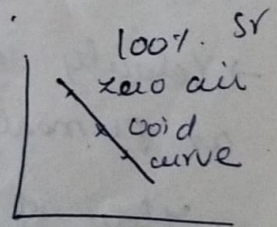 100%. Sr
zero air
void
curve